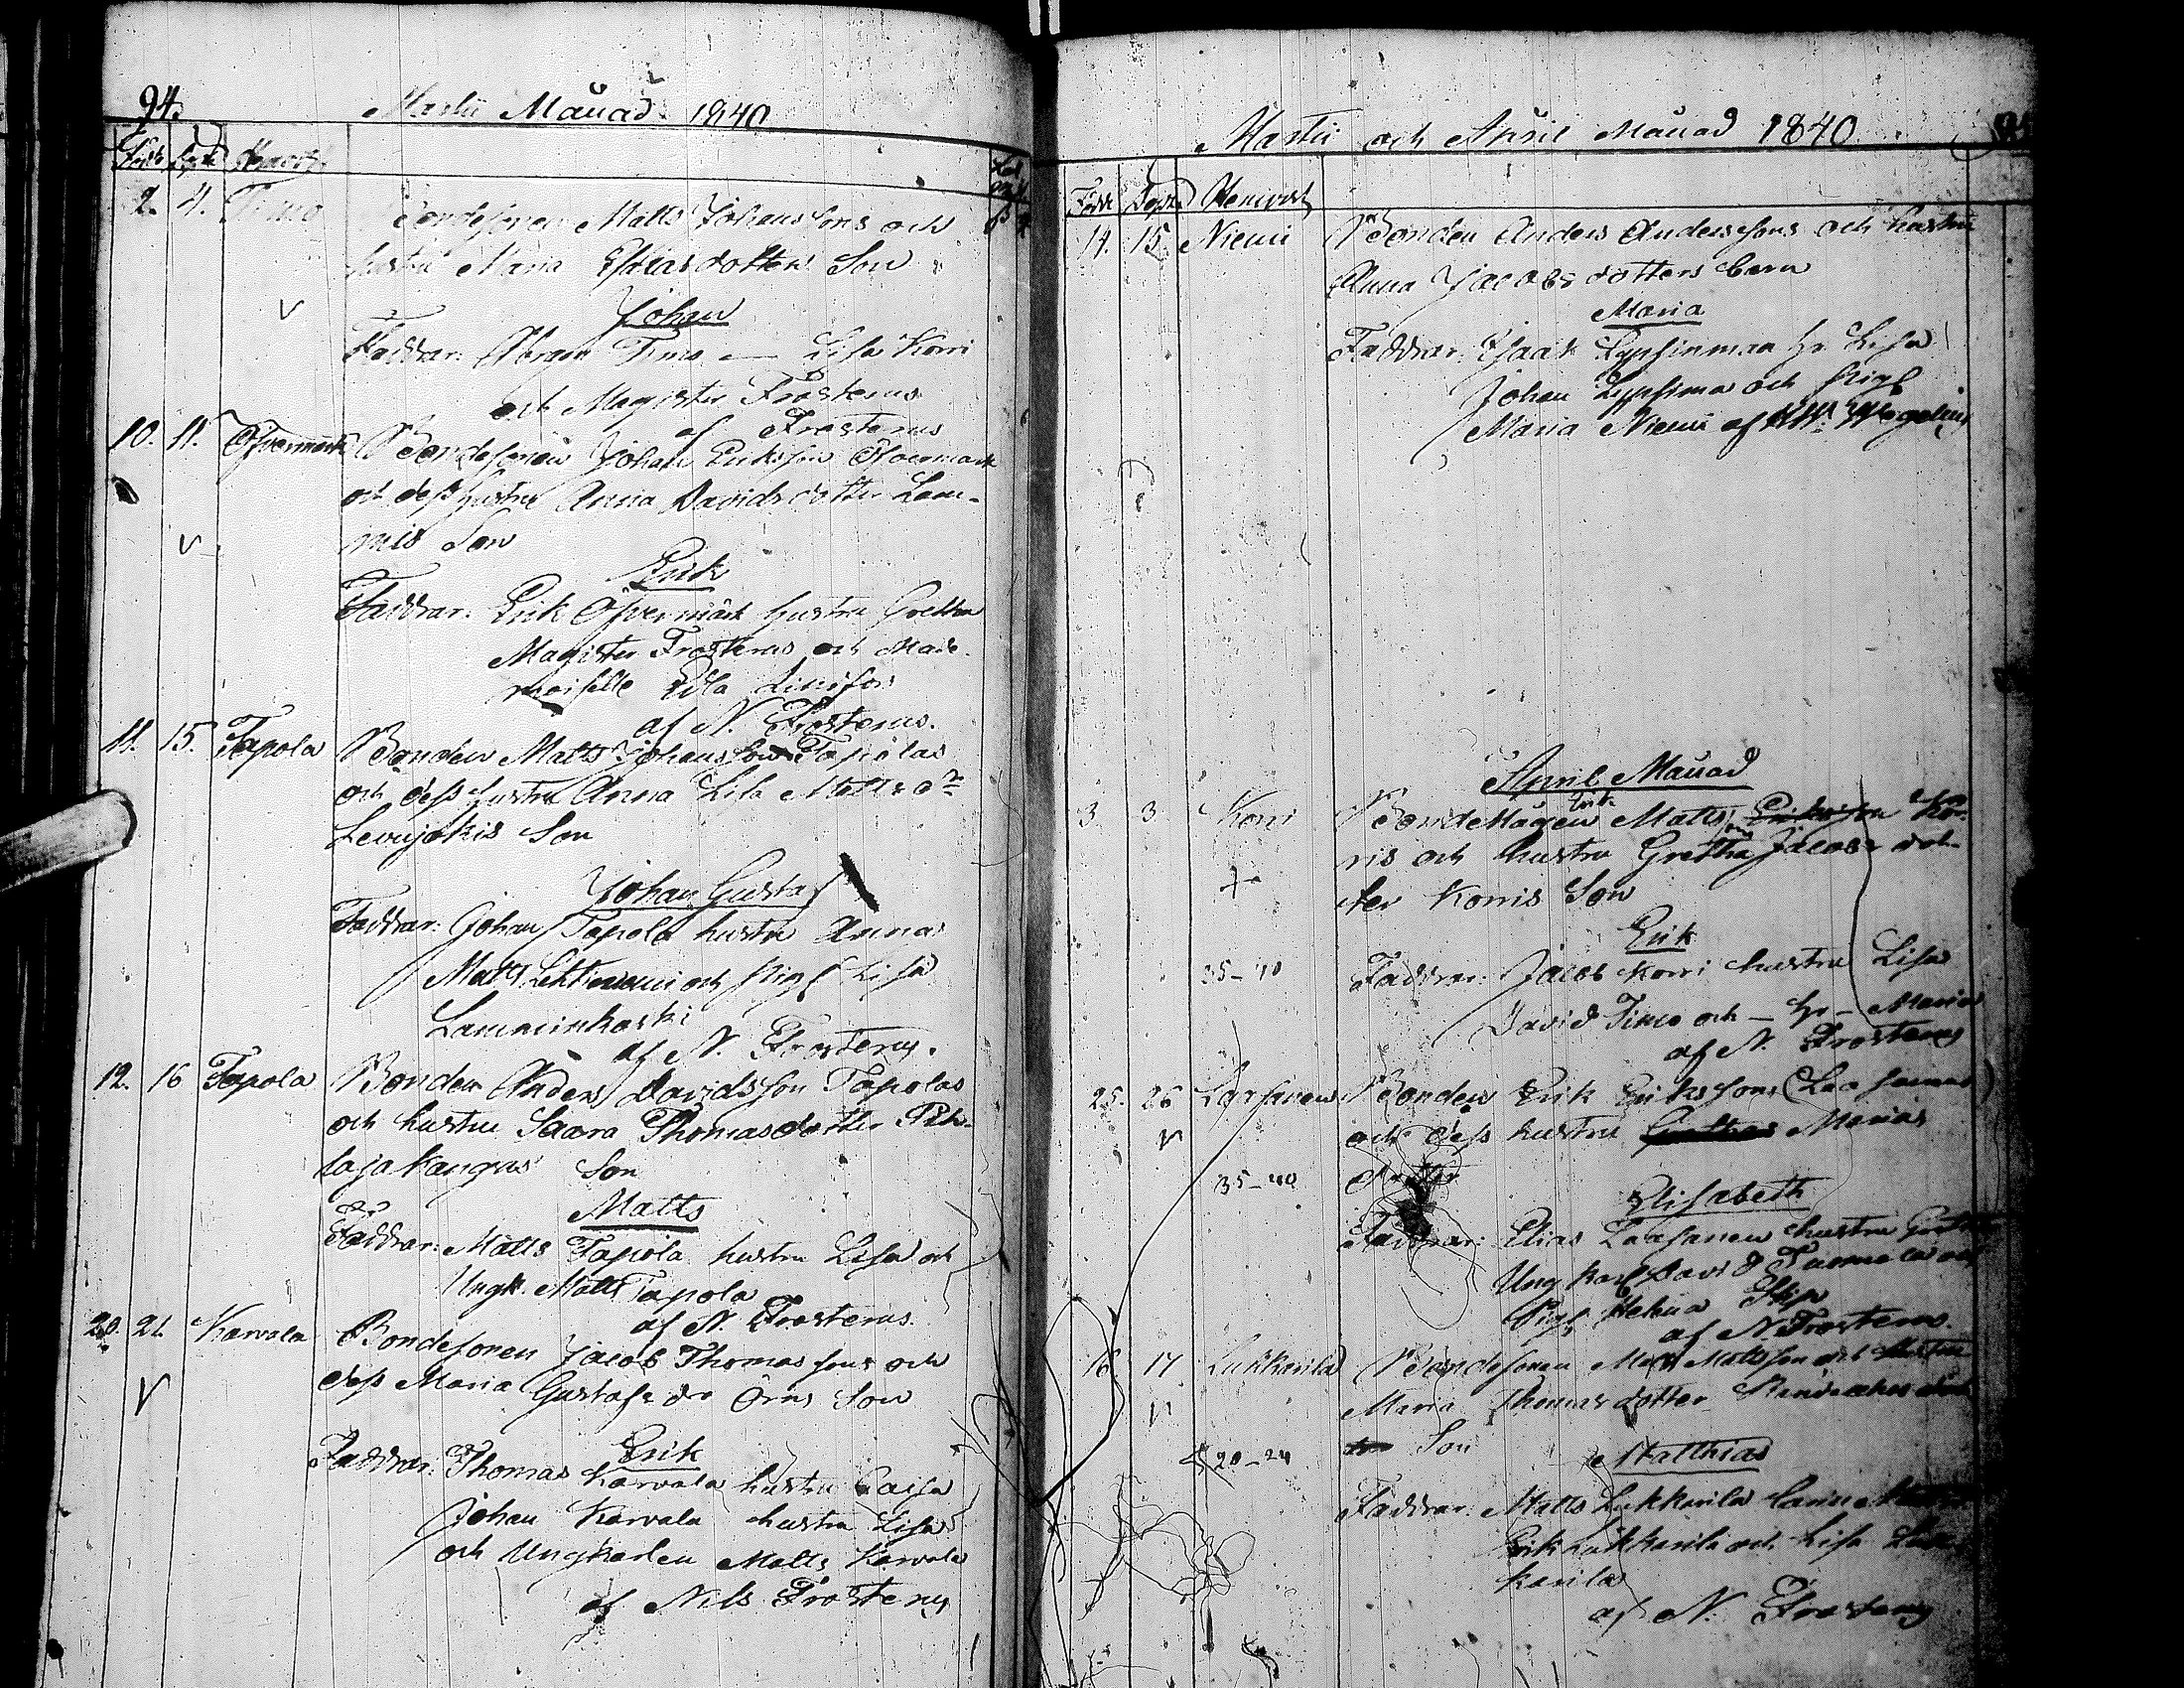 94.
Martii Månad 1840
Född Döpt Hemort
2. 4. Timo Bondesonen Matts Johanssons och
hustru Maria Esaiasdotters Son
Johan
Faddrar: Abram Timo — Lisa Korri
och Magister Frosterus
af Frosterus
10. 11. Öfvermark Bondesonen Johan Eriksson Öfvermark
och dess hustru Anna Davidsdotter Lam-
mis Son
Erik
Faddrar: Erik Öfvermark hustru Gretha
Magister Frosterus och Made-
moiselle
af N. Frosterus.
11. 15. Tapola Bonden Matts Johansson Tapolas
och dess hustru Anna Lisa Matts dr
Levijokis Son
Johan Gustaf
Faddrar: Johan Tapola hustru Anna
Matts Lehtiniemi och pig. Lisa
Lamminkoski
af N. Frosterus.
12. 16 Tapola Bonden Anders Davidsson Tapolas
och hustru Saara Thomasdotter Pih-
lajakangas Son
Matts
Faddrar: Matts Tapola hustru Lisa och
Ungk. Matts Tapola
af N. Frosterus.
20. 21. Karvala Bondesonen Jacob Thomassons och
dess Maria Gustafs dr Örns Son
Erik
Faddrar: Thomas Karvala hustru Caisa
Johan Karvala hustru Lisa
och Ungkarlen Matts Karvala
af Nils Frosterus
Martii och April Månad 1840
Född Döpt Hemort
14. 15. Niemi Bonden Anders Anderssons och hustru
Anna Jacobsdotters barn
Maria
Faddrar: Isaak Lypsinmaa h. Lisa
Johan Lypsinma och pig.
Maria Niemi af Wegelius
April Månad
3 3 Korri Bondemågen Erik Mattssons Kor-
ris och hustru Gretha Jacobs dot-
ter Korris Son
Erik
35-40 Faddrar: Jacob Korri hustru Lisa
David Timo och — h. — Maria
af N. Frosterus
25. 26 Laasanen Bonden Erik Erikssons (Laasanen)
och dess hustru Marias
35-40 dotter
Elisabeth
Faddrar: Elias Laasanen hustru Gretha
Ungkarl David Tuomela och
Pig.
af N. Frosterus.
16. 17 Lukkarila Bondesonen Matts Mattsson och hustru
Maria Thomasdotter
Son
20-24 Matthias
Faddrar: Matts Lukkarila
Erik Lukkarila och Lisa Luk-
karila
af N. Frosterus